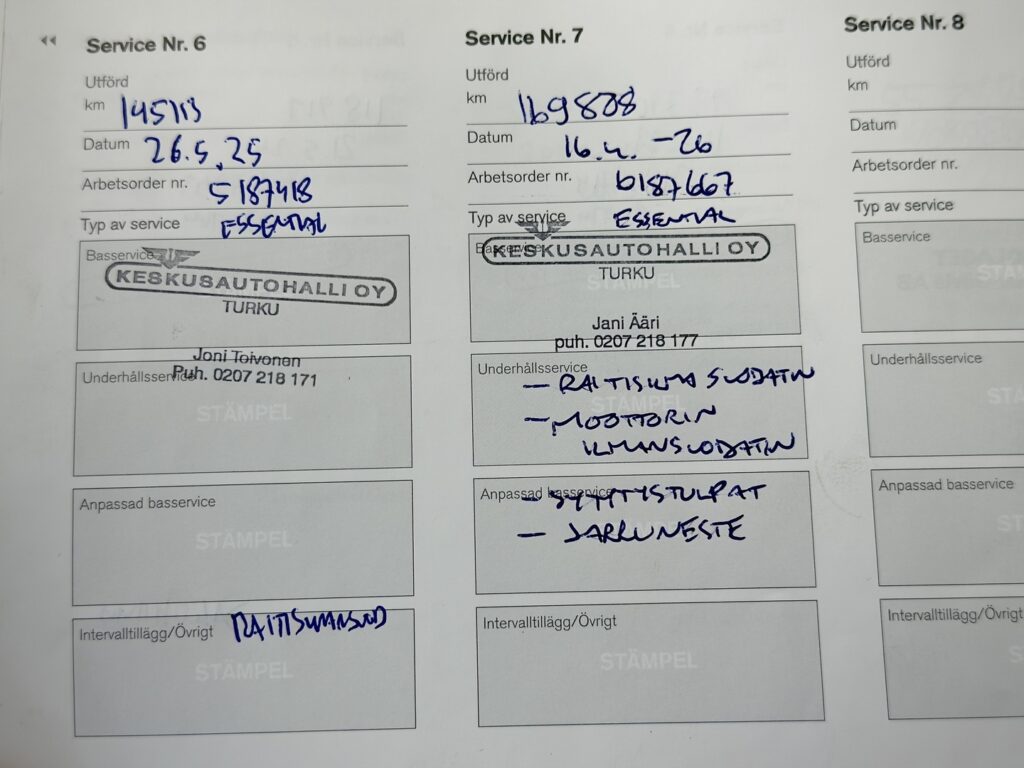 Service Nr. 6
Utförd
km 145113
Datum 26.5.25
Arbetsorder nr. 5187418
Typ av service ESSENTIAL
Basservice
KESKUSAUTOHALLI OY
TURKU
Joni Toivonen
Underhållsservice
Puh. 0207 218 171
STÄMPEL
Anpassad basservice
STÄMPEL
Intervalltillägg/Övrigt RAITISILMANSUOD
STÄMPEL
Service Nr. 7
Utförd
km 169808
Datum 16.4. -26
Arbetsorder nr. 6187667
Typ av service ESSENTIAL
Basservice
KESKUSAUTOHALLI OY
TURKU
STÄMPEL
Jani Ääri
puh. 0207 218 177
Underhållsservice
– RAITISILMA SUODATIN
STÄMPEL
– MOOTTORIN
ILMANSUODATIN
Anpassad basservice
– SYTYTYSTULPAT
– JARRUNESTE
Intervalltillägg/Övrigt
STÄMPEL
Service Nr. 8
Utförd
km
Datum
Arbetsorder nr.
Typ av service
Basservice
Underhållsservice
Anpassad basservice
Intervalltillägg/Övrigt